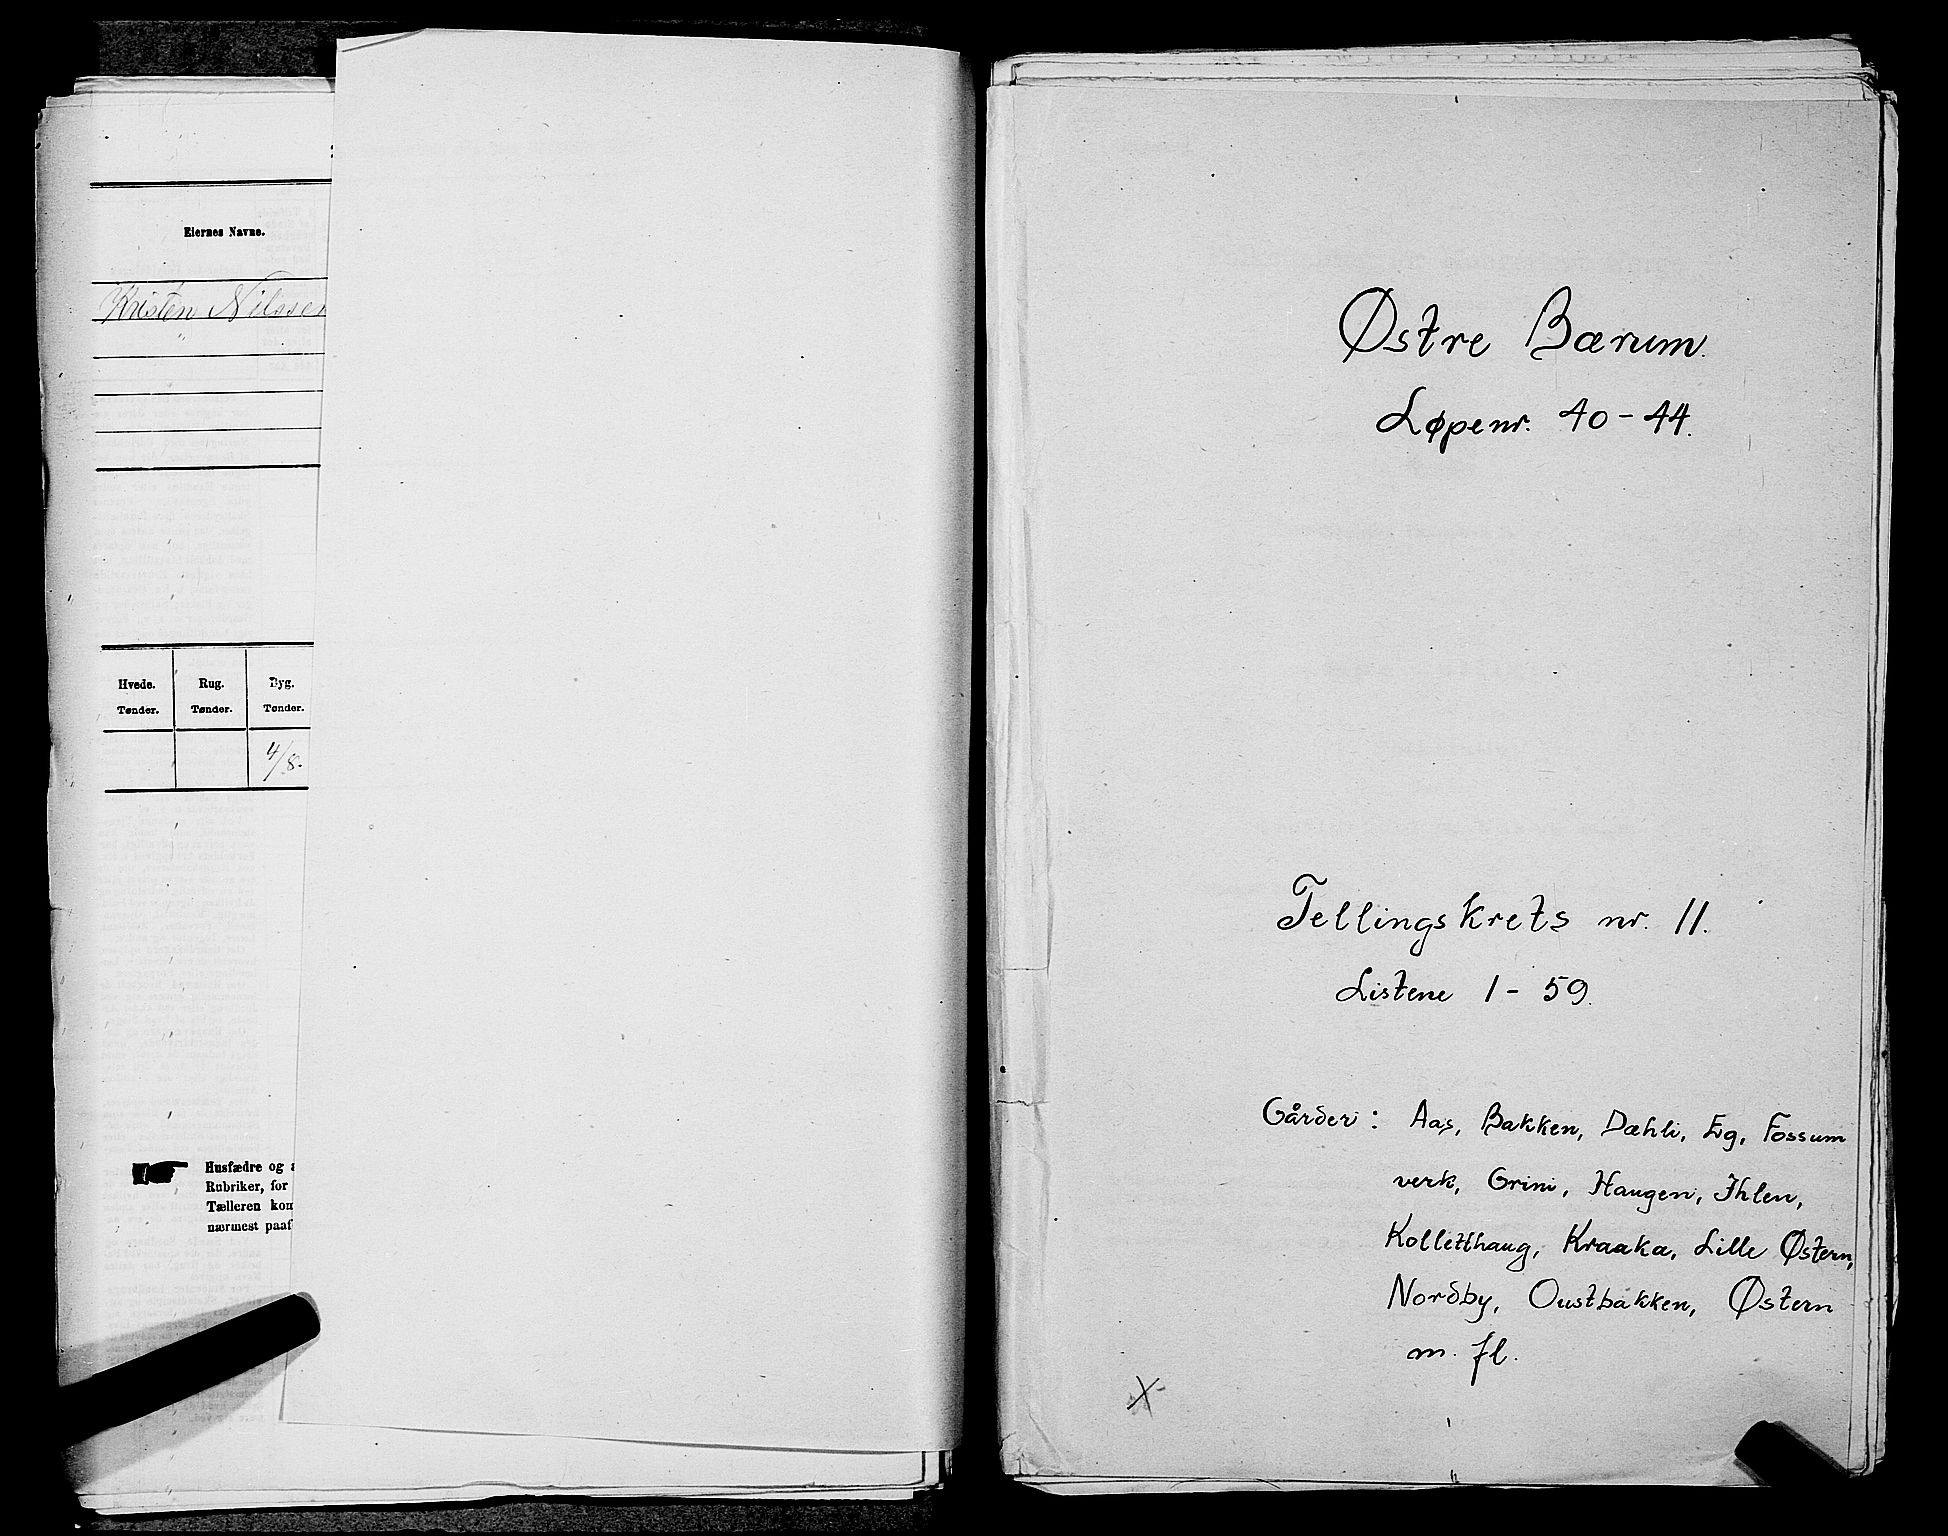 Eiernes Navne.
Kristen Nilssen
"
Hvede. Rug. Byg.
Tønder. Tønder. Tønder.
4/8.
Husfædre og
Rubriker, for
Tælleren kom
nærmest paaf
Østre Bærum.
Løpenr. 40-44.
Tellingskrets nr. 11.
Listene 1-59.
Gårder: Aas, Bakken, Dæhli, Eg, Fossum
verk, Grini, Haugen, Ihlen,
Kolletthaug, Kraaka, Lille Østern,
Nordby, Oustbakken, Østern
m. fl.
X